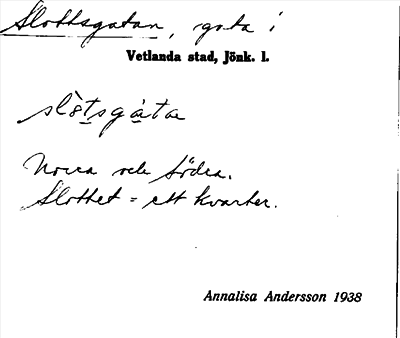 Slottsgatan, gata i
Vetlanda stad, Jönk. l.
slòtsgàta
Norra och södra.
Slottet = ett kvarter.
Annalisa Andersson 1938